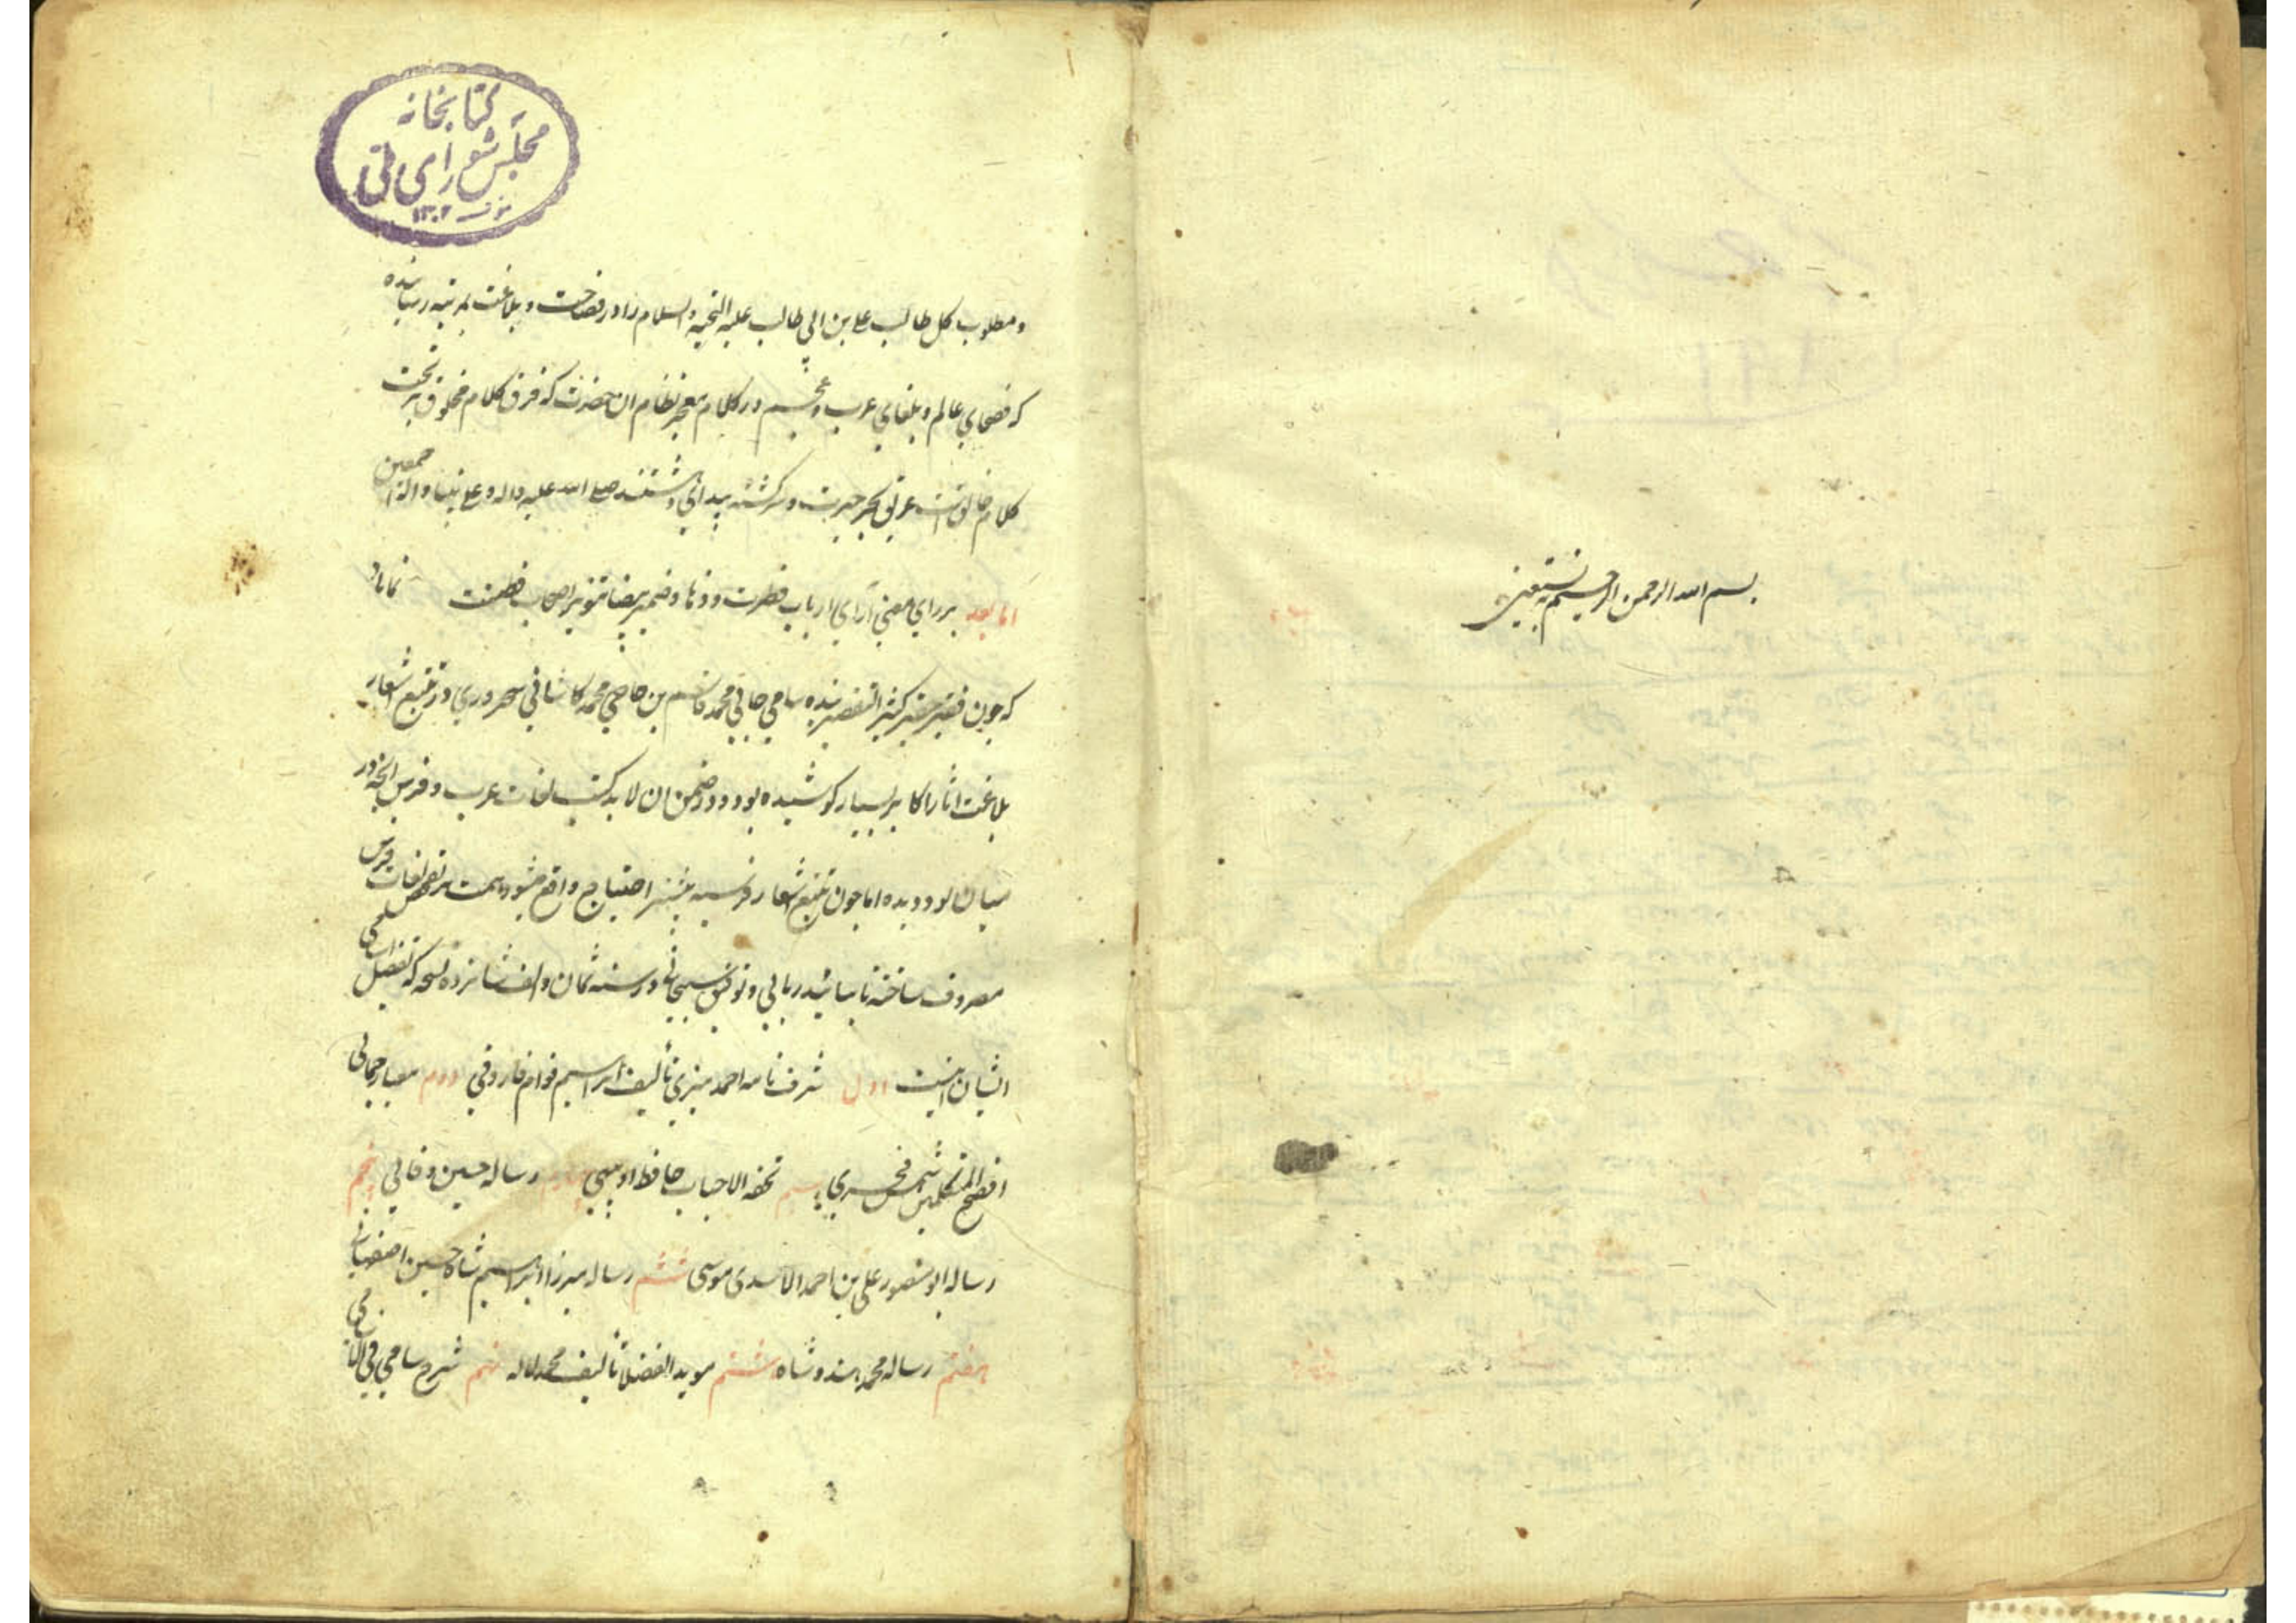 بسم الله الرحمن الرحیم به نستعین
کتابخانه
مجلس شورای ملی
۱۳۰۲
و مطلوب کل طالب علی بن ابی طالب علیه التحیه والسلام را در فصاحت و بلاغت بمرتبه رسانیده
که فصحای عالم و بلغای عرب و عجم در کلام معجز نظام ان حضرت که فرق کلام مخلوق و تحت
کلام خالق است غریق بحر حیرت و سرکشته بیدای صلی الله علیه واله و علی نبینا واله اجمعین
اما بعد بر رای معنی آرای ارباب فطرت و ذکا و ضمیر بیضا تنویر اصحاب فطنت نماناد
که چون فقیر حقیر کثیر التقصیر بنده سامی جانی محمد قاسم بن حاجی محمد کاشانی سروری در تتبع اشعار
بلاغت اثار اکابر بسیار کوشیده بود و در ضمن ان لابد کتب لغات عرب و فرس انچه در
میان بود دیده اما چون تتبع اشعار فرسیه بیشتر احتیاج واقع میشود همت بر تفحص لغات فرس
مصروف ساخته تا بتائید ربانی و توفیق سبحانی در سنه ثمان و الف شانزده نسخه که تفصیل اسامی
ایشان اینست اول شرف نامه احمد منیری تألیف ابراهیم قوام فاروقی دوم معیار جمالی
افصح المتکلمین شمس فخری سیم تحفه الاحباب حافظ اوبهی چهارم رساله حسین وفائی پنجم
رساله ابو منصور علی بن احمد الاسدی طوسی ششم رساله میرزا ابراهیم شاه حسین اصفهانی
هفتم رساله محمد هندوشاه هشتم موید الفضلا تألیف محمد لاله نهم شرح سامی فی الاسامی